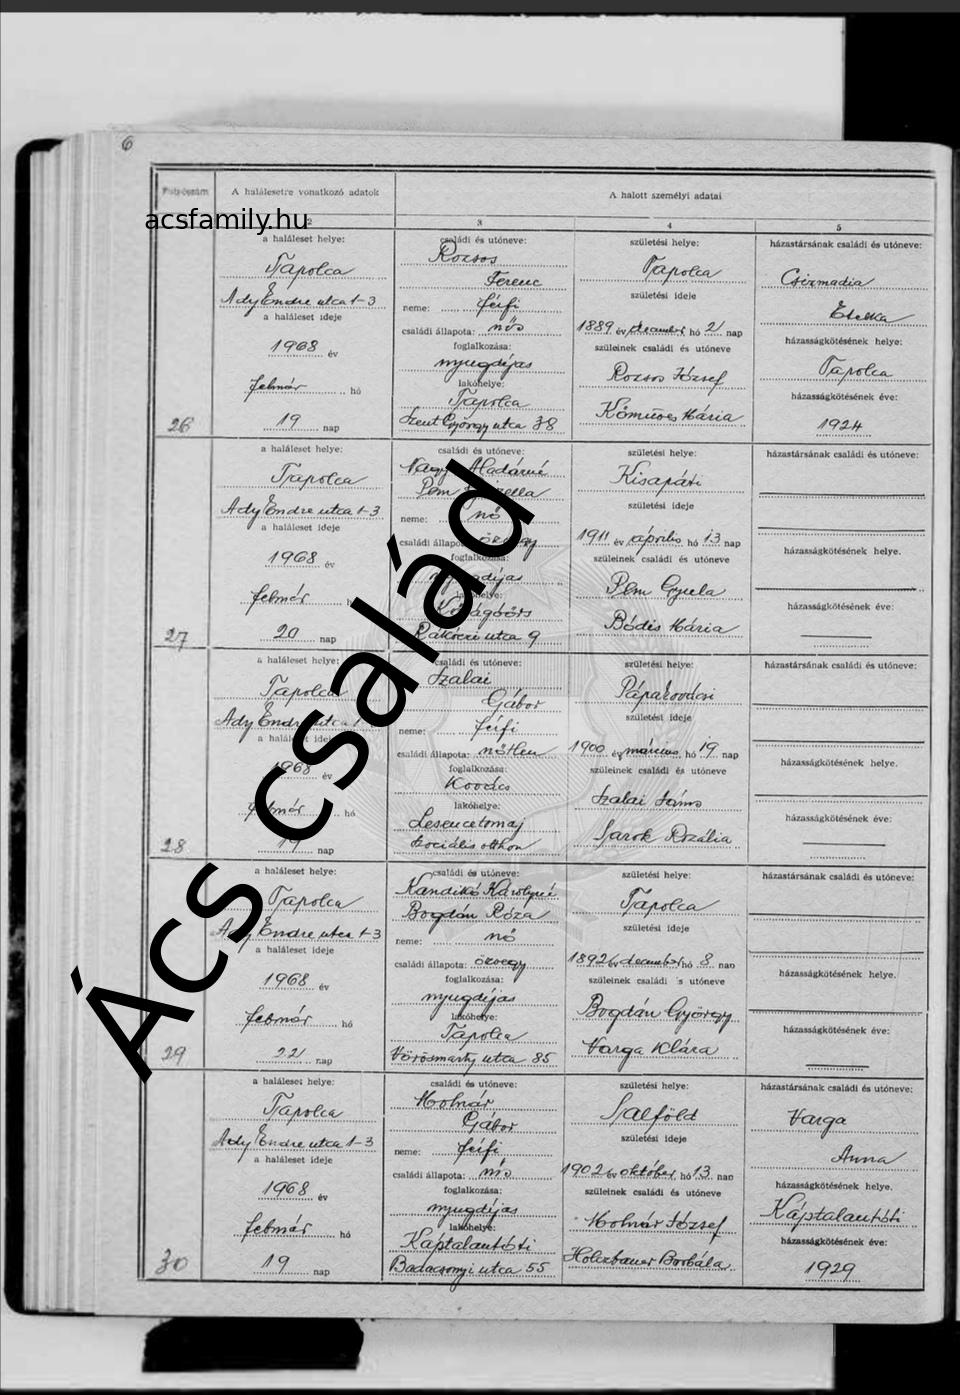 6
A halálesetre vonatkozó adatok
A halott személyi adatai
acsfamily.hu
2
3
4
5
a haláleset helye:
Tapolca
Ady Endre utca 1-3
a haláleset ideje
1968 év
február hó
26
19 nap
családi és utóneve:
Rozsos
Ferenc
neme: férfi
családi állapota: nős
foglalkozása:
nyugdíjas
lakóhelye:
Tapolca
Szent György utca 38
születési helye:
Tapolca
születési ideje
1889 év december hó 21 nap
szüleinek családi és utóneve
Rozsos József
Kőműves Mária
házastársának családi és utóneve:
Csizmadia
Etelka
házasságkötésének helye:
Tapolca
házasságkötésének éve:
1924
a haláleset helye:
Tapolca
Ady Endre utca 1-3
a haláleset ideje
1968 év
február
27
20 nap
családi és utóneve:
Nagy Aladárné
Pem
neme: nő
családi állapota: özvegy
foglalkozása:
nyugdíjas
lakóhelye:
Kővágóörs
Rákóczi utca 9
születési helye:
Kisapáti
születési ideje
1911 év április hó 13 nap
szüleinek családi és utóneve
Pem Gyula
Bódis Mária
házastársának családi és utóneve:
házasságkötésének helye.
házasságkötésének éve:
a haláleset helye:
Tapolca
Ady Endre utca 1
a haláleset ideje
1968 év
február hó
28
19 nap
családi és utóneve:
Szalai
Gábor
neme: férfi
családi állapota: nőtlen
foglalkozása:
Kovács
lakóhelye:
Lesencetomaj
Szociális otthon
születési helye:
Pápakovácsi
születési ideje
1900 év március hó 19 nap
szüleinek családi és utóneve
Szalai János
Sarok Rozália
házastársának családi és utóneve:
házasságkötésének helye.
házasságkötésének éve:
a haláleset helye:
Tapolca
Ady Endre utca 1-3
a haláleset ideje
1968 év
február hó
29
22 nap
családi és utóneve:
Kandikó Károlyné
Bogdán Róza
neme: nő
családi állapota: özvegy
foglalkozása:
nyugdíjas
lakóhelye:
Tapolca
Vörösmarty utca 85
születési helye:
Tapolca
születési ideje
1892 év december hó 8 nap
szüleinek családi s utóneve
Bogdán György
Varga Klára
házastársának családi és utóneve:
házasságkötésének helye.
házasságkötésének éve:
a haláleset helye:
Tapolca
Ady Endre utca 1-3
a haláleset ideje
1968 év
február hó
30
19 nap
családi és utóneve:
Molnár
Gábor
neme: férfi
családi állapota: nős
foglalkozása:
nyugdíjas
lakóhelye:
Káptalantóti
Badacsonyi utca 55
születési helye:
Salföld
születési ideje
1902 év október hó 13 nap
szüleinek családi és utóneve
Molnár József
Holczbauer Borbála
házastársának családi és utóneve:
Varga
Anna
házasságkötésének helye.
Káptalantóti
házasságkötésének éve:
1929
Ács család